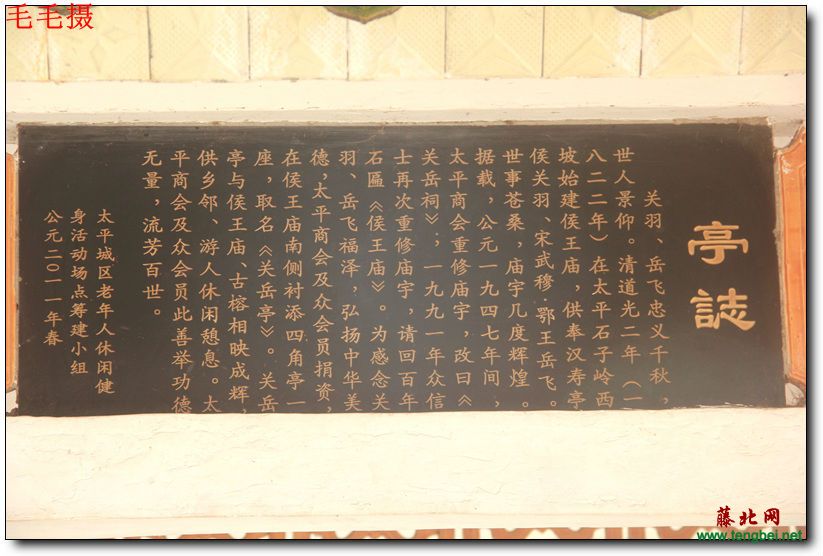 毛毛摄
亭誌
关羽、岳飞忠义千秋，
世人景仰。清道光二年（一
八二二年）在太平石子岭西
坡始建侯王庙，供奉汉寿亭
侯关羽、宋武穆·鄂王岳飞。
世事苍桑，庙宇几度辉煌。
据载，公元一九四七年间，
太平商会重修庙宇，改曰《
关岳祠》；一九九一年众信
士再次重修庙宇，请回百年
石匾《侯王庙》。为感念关
羽、岳飞福泽，弘扬中华美
德，太平商会及众会员捐资，
在侯王庙南侧衬添四角亭一
座，取名《关岳亭》。关岳
亭与侯王庙、古榕相映成辉，
供乡邻、游人休闲憩息。太
平商会及众会员此善举功德
无量，流芳百世。
太平城区老年人休闲健
身活动场点筹建小组
公元二〇一一年春
藤北网
www.tengbei.net